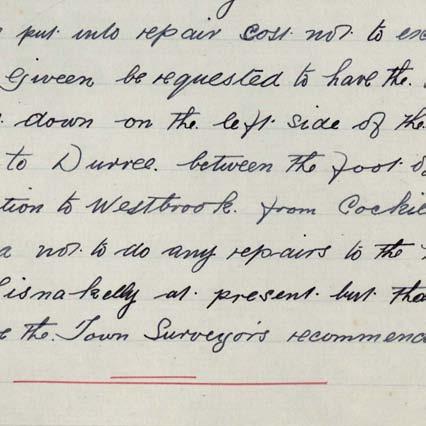 put into repair cost not to ex
Giveen be requested to have the
down on the left side of the
to Durree between the foot of
tion to Westbrook from Cockle
a not to do any repairs to the
lisnakelly at present but tha
e the Town Surveyors recommenda